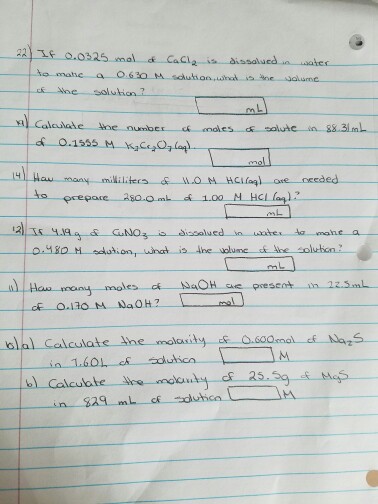 22) If 0.0325 mol of CaCl2 is dissolved in water
to make a 0.630 M solution, what is the volume
of the solution?
mL
19) Calculate the number of moles of solute in 88.31 mL
of 0.1555 M K2Cr2O7 (aq)
mol
14) How many milliliters of 11.0 M HCl(aq) are needed
to prepare 280.0 mL of 1.00 M HCl (aq)?
mL
12) If 4.19 g of NO3 is dissolved in water to make a
0.480 M solution, what is the volume of the solution?
mL
11) How many moles of NaOH are present in 22.5 mL
of 0.170 M NaOH?
mol
10) a) Calculate the molarity of 0.600 mol of Na2S
in 1.60L of solution
M
b) Calculate the molarity of 25.5g of MgS
in 829 mL of solution
M